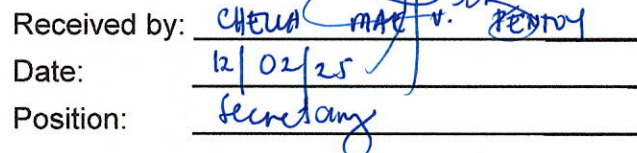 Received by: CHELLA MAE V. PENTOY
Date: 12/02/25
Position: Secretary